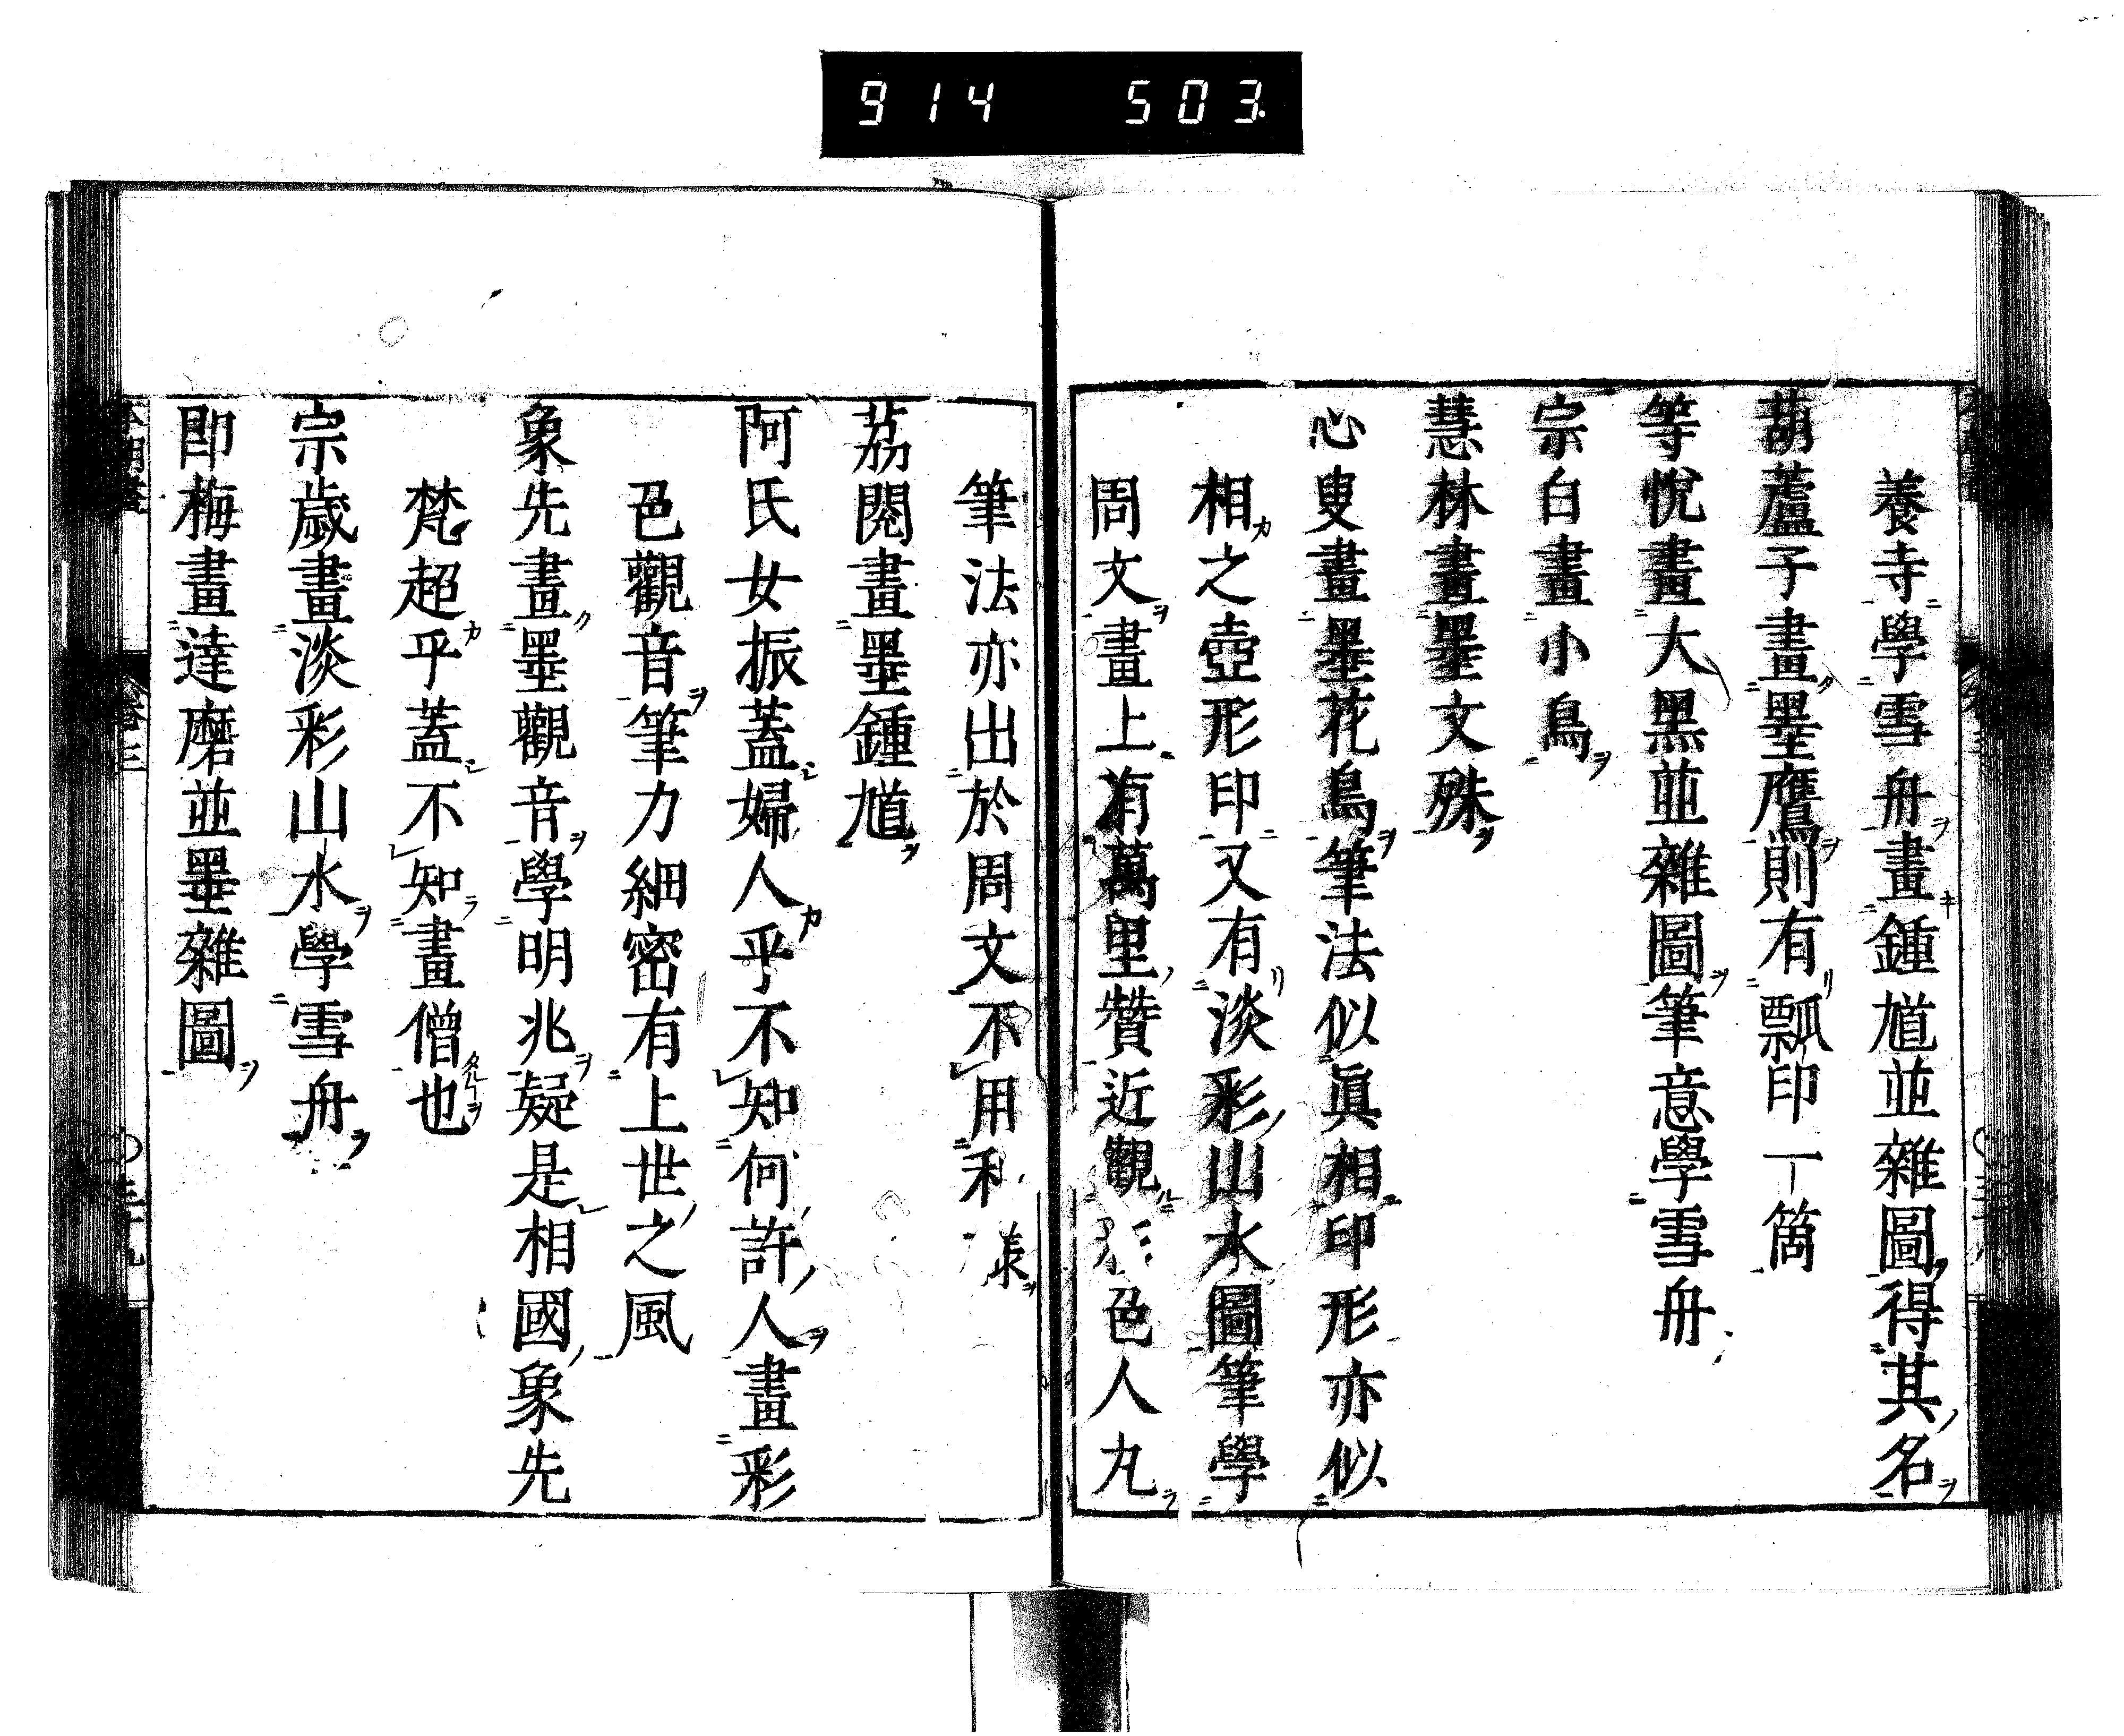 914 503
養寺學雪舟畫鍾馗並雜圖得其名
葫蘆子畫墨鷹則有瓢印一箇
等悅畫大黑並雜圖筆意學雪舟
宗白畫小鳥
慧林畫墨文殊
心叟畫墨花鳥筆法似眞相印形亦似
相之壺形印又有淡彩山水圖筆學
周文畫上有萬里贊近觀彩色人丸
筆法亦出於周文不用利樣
茘閱畫墨鍾馗
阿氏女振蓋婦人乎不知何許人畫彩
色觀音筆力細密有上世之風
象先畫墨觀音學明兆疑是相國象先
梵超乎蓋不知畫僧也
宗歲畫淡彩山水學雪舟
即梅畫達磨並墨雜圖